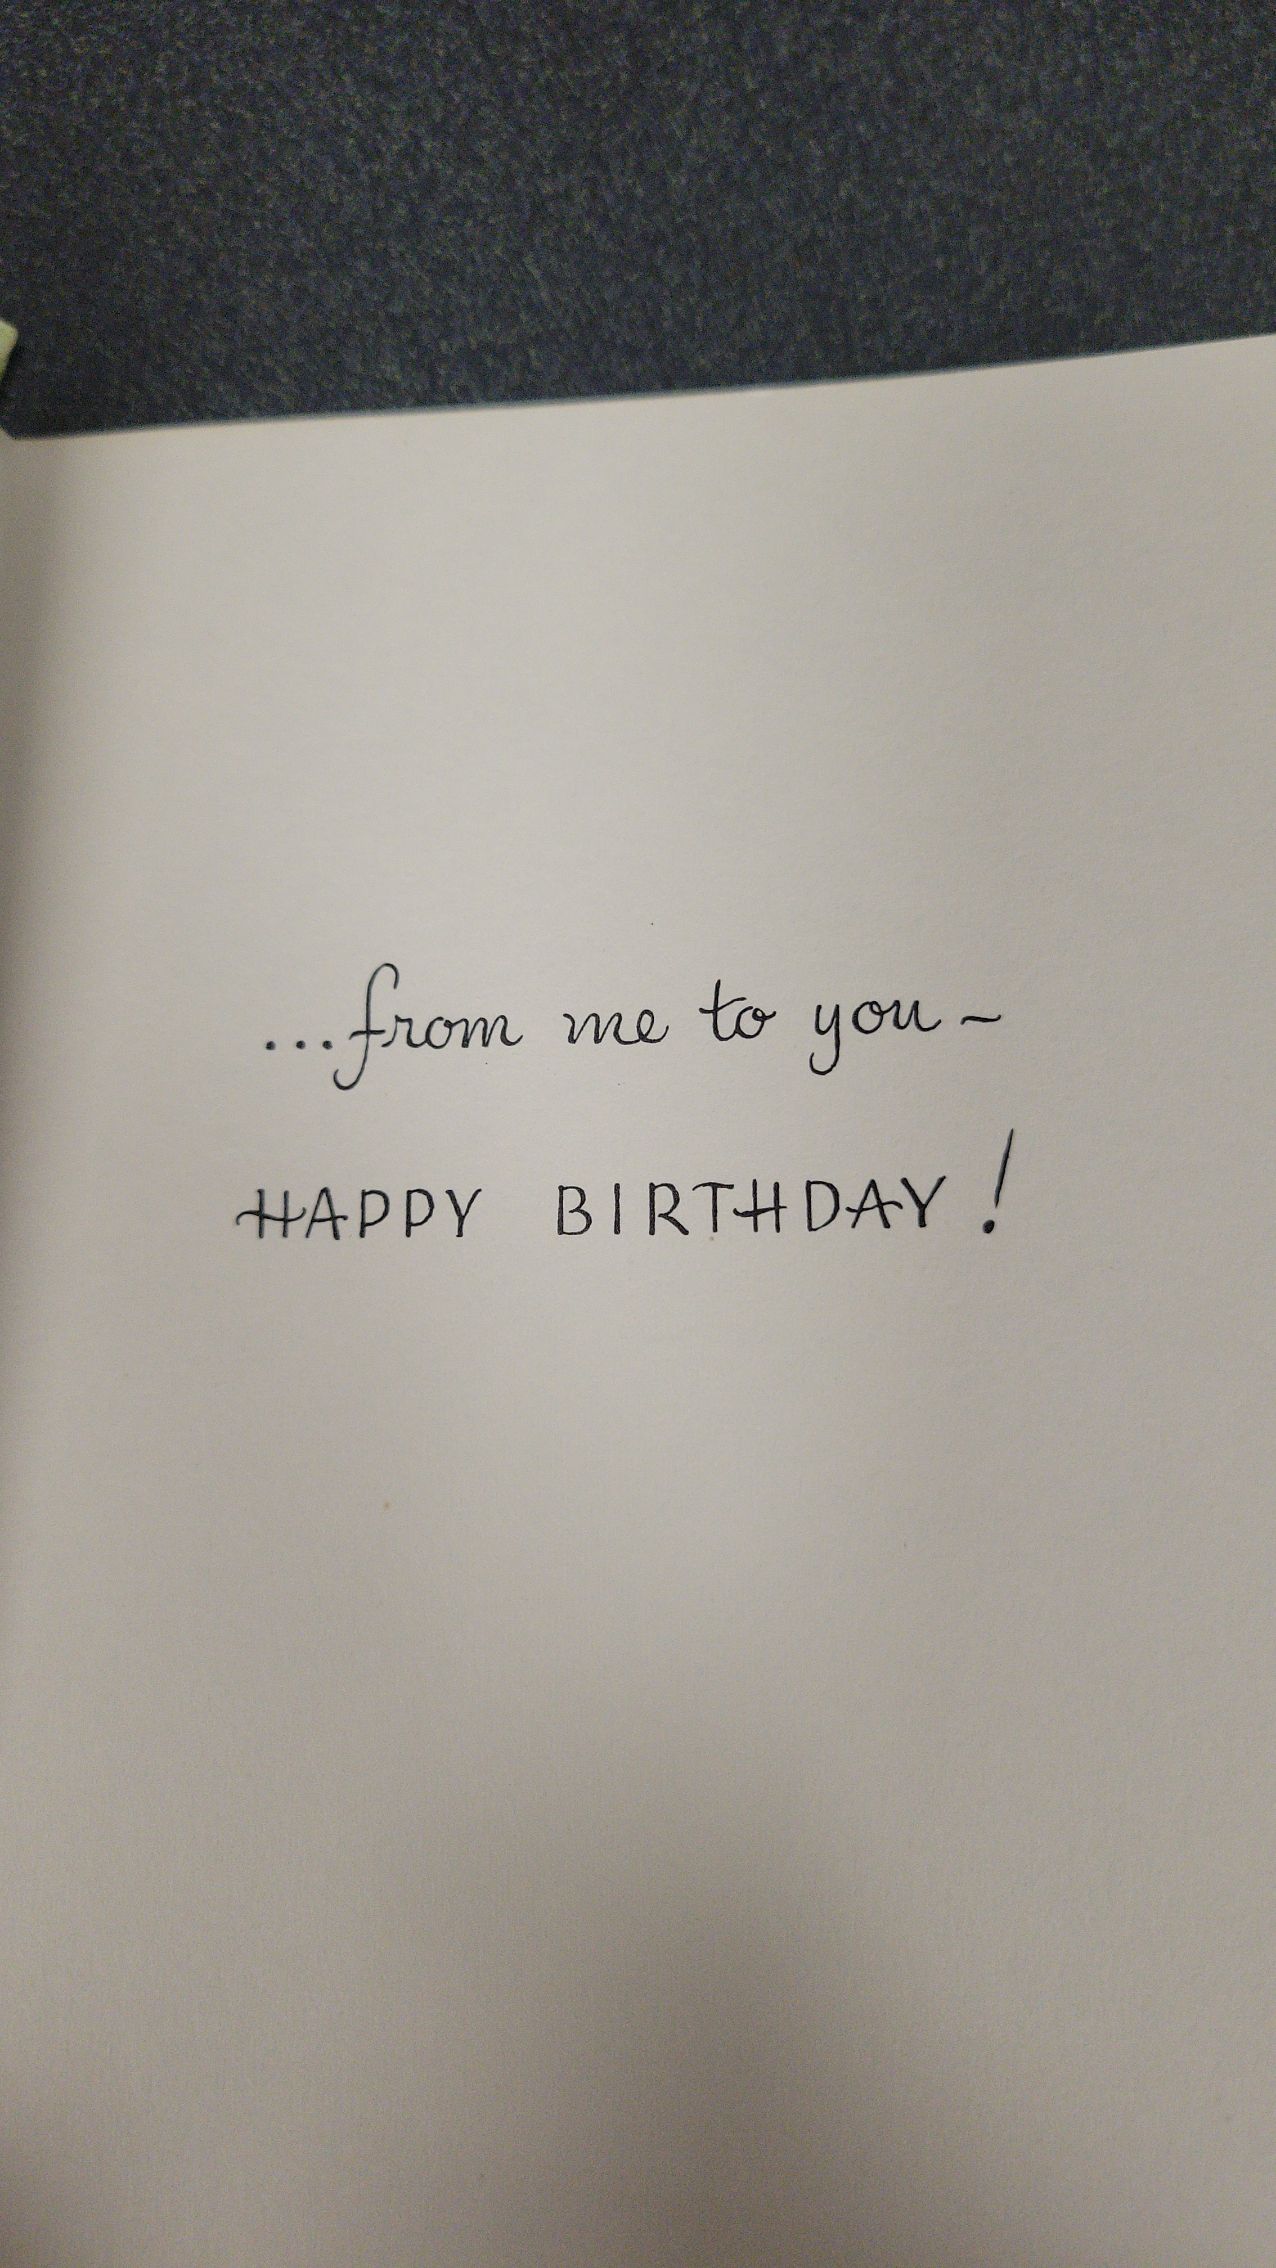 ...from me to you~
HAPPY BIRTHDAY!